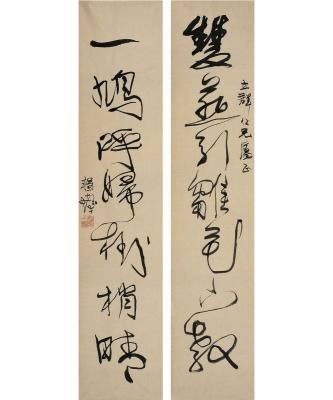 雙燕引雛花下教
仁兄屬正
一鳩呼婦樹梢晴